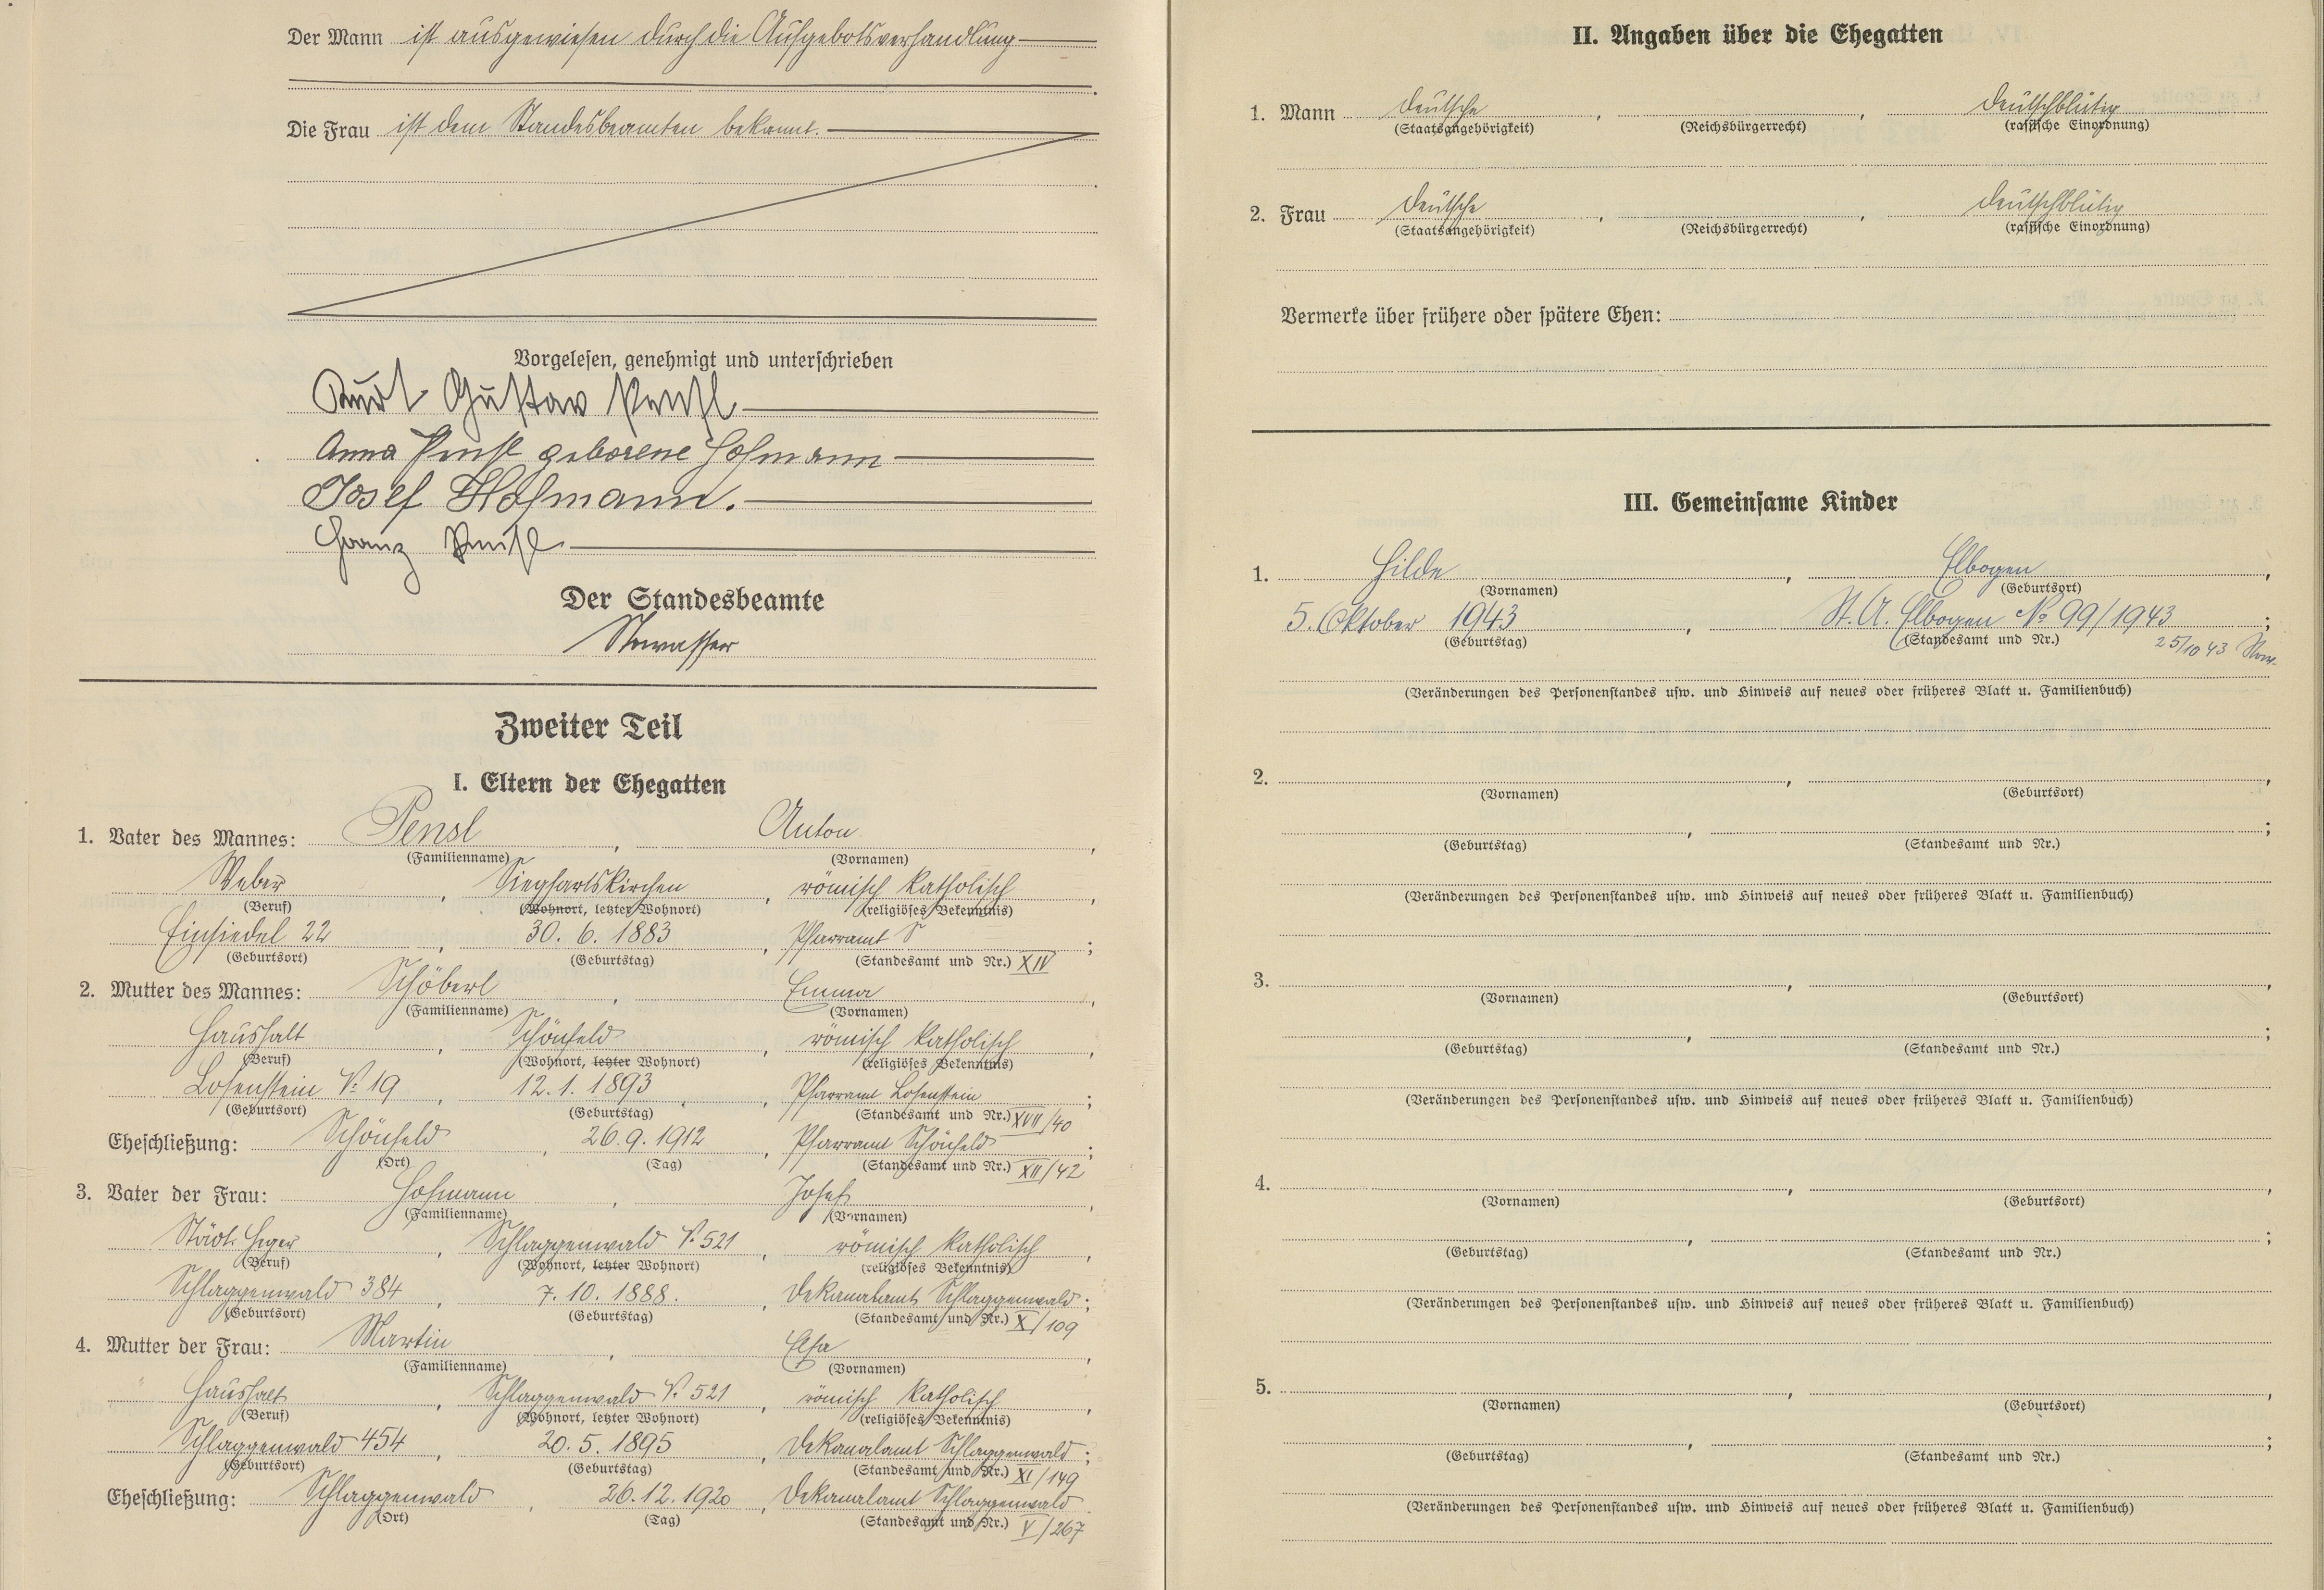 Der Mann ist ausgewiesen durch die Aufgebotsverhandlung
Die Frau ist dem Standesbeamten bekannt.
Vorgelesen, genehmigt und unterschrieben
Kurt Gustav Pensl
Anna Pensl geborene Hofmann
Josef Hofmann.
Franz Pensl
Der Standesbeamte
Zweiter Teil
I. Eltern der Ehegatten
1. Vater des Mannes: Pensl, Anton,
(Familienname) (Vornamen)
Weber, Sieghartskirchen, römisch katholisch,
(Beruf) (Wohnort, letzter Wohnort) (religiöses Bekenntnis)
Einsiedel 22, 30. 6. 1883, Pfarramt S;
(Geburtsort) (Geburtstag) (Standesamt und Nr.) XIV
2. Mutter des Mannes: Schöberl, Emma,
(Familienname) (Vornamen)
Haushalt, Schönfeld, römisch katholisch,
(Beruf) (Wohnort, letzter Wohnort) (religiöses Bekenntnis)
Losenstein No 19, 12. 1. 1893, Pfarramt Losenstein;
(Geburtsort) (Geburtstag) (Standesamt und Nr.) XVII/40
Eheschließung: Schönfeld, 26. 9. 1912, Pfarramt Schönfeld;
(Ort) (Tag) (Standesamt und Nr.) XII/42
3. Vater der Frau: Hofmann, Josef,
(Familienname) (Vornamen)
Städt. Heger, Schlaggenwald No 521, römisch katholisch,
(Beruf) (Wohnort, letzter Wohnort) (religiöses Bekenntnis)
Schlaggenwald 384, 7. 10. 1888., Dekanalamt Schlaggenwald;
(Geburtsort) (Geburtstag) (Standesamt und Nr.) X/109
4. Mutter der Frau: Martin, Elsa,
(Familienname) (Vornamen)
Haushalt, Schlaggenwald No 521, römisch katholisch,
(Beruf) (Wohnort, letzter Wohnort) (religiöses Bekenntnis)
Schlaggenwald 454, 20. 5. 1895, Dekanalamt Schlaggenwald;
(Geburtsort) (Geburtstag) (Standesamt und Nr.) XI/149
Eheschließung: Schlaggenwald, 26. 12. 1920, Dekanalamt Schlaggenwald
(Ort) (Tag) (Standesamt und Nr.) V/267
II. Angaben über die Ehegatten
1. Mann deutsche, , deutschblütig
(Staatsangehörigkeit) (Reichsbürgerrecht) (rassische Einordnung)
2. Frau deutsche, , deutschblütig
(Staatsangehörigkeit) (Reichsbürgerrecht) (rassische Einordnung)
Vermerke über frühere oder spätere Ehen:
III. Gemeinsame Kinder
1. Hilde, Elbogen,
(Vornamen) (Geburtsort)
5. Oktober 1943, St. A. Elbogen No 99/1943;
(Geburtstag) (Standesamt und Nr.) 25/10 43
(Veränderungen des Personenstandes usw. und Hinweis auf neues oder früheres Blatt u. Familienbuch)
2. , ,
(Vornamen) (Geburtsort)
, ;
(Geburtstag) (Standesamt und Nr.)
(Veränderungen des Personenstandes usw. und Hinweis auf neues oder früheres Blatt u. Familienbuch)
3. , ,
(Vornamen) (Geburtsort)
, ;
(Geburtstag) (Standesamt und Nr.)
(Veränderungen des Personenstandes usw. und Hinweis auf neues oder früheres Blatt u. Familienbuch)
4. , ,
(Vornamen) (Geburtsort)
, ;
(Geburtstag) (Standesamt und Nr.)
(Veränderungen des Personenstandes usw. und Hinweis auf neues oder früheres Blatt u. Familienbuch)
5. , ,
(Vornamen) (Geburtsort)
, ;
(Geburtstag) (Standesamt und Nr.)
(Veränderungen des Personenstandes usw. und Hinweis auf neues oder früheres Blatt u. Familienbuch)